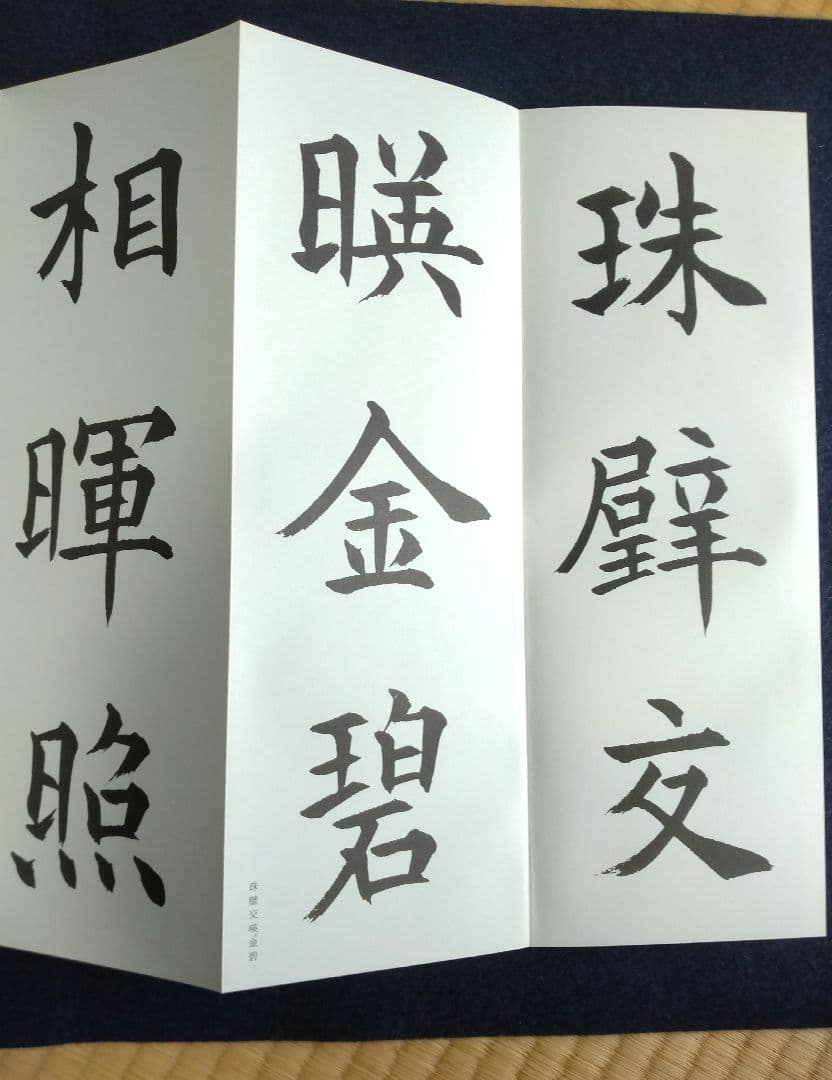 珠璧交
暎金碧
珠璧交暎。金碧
相暉照